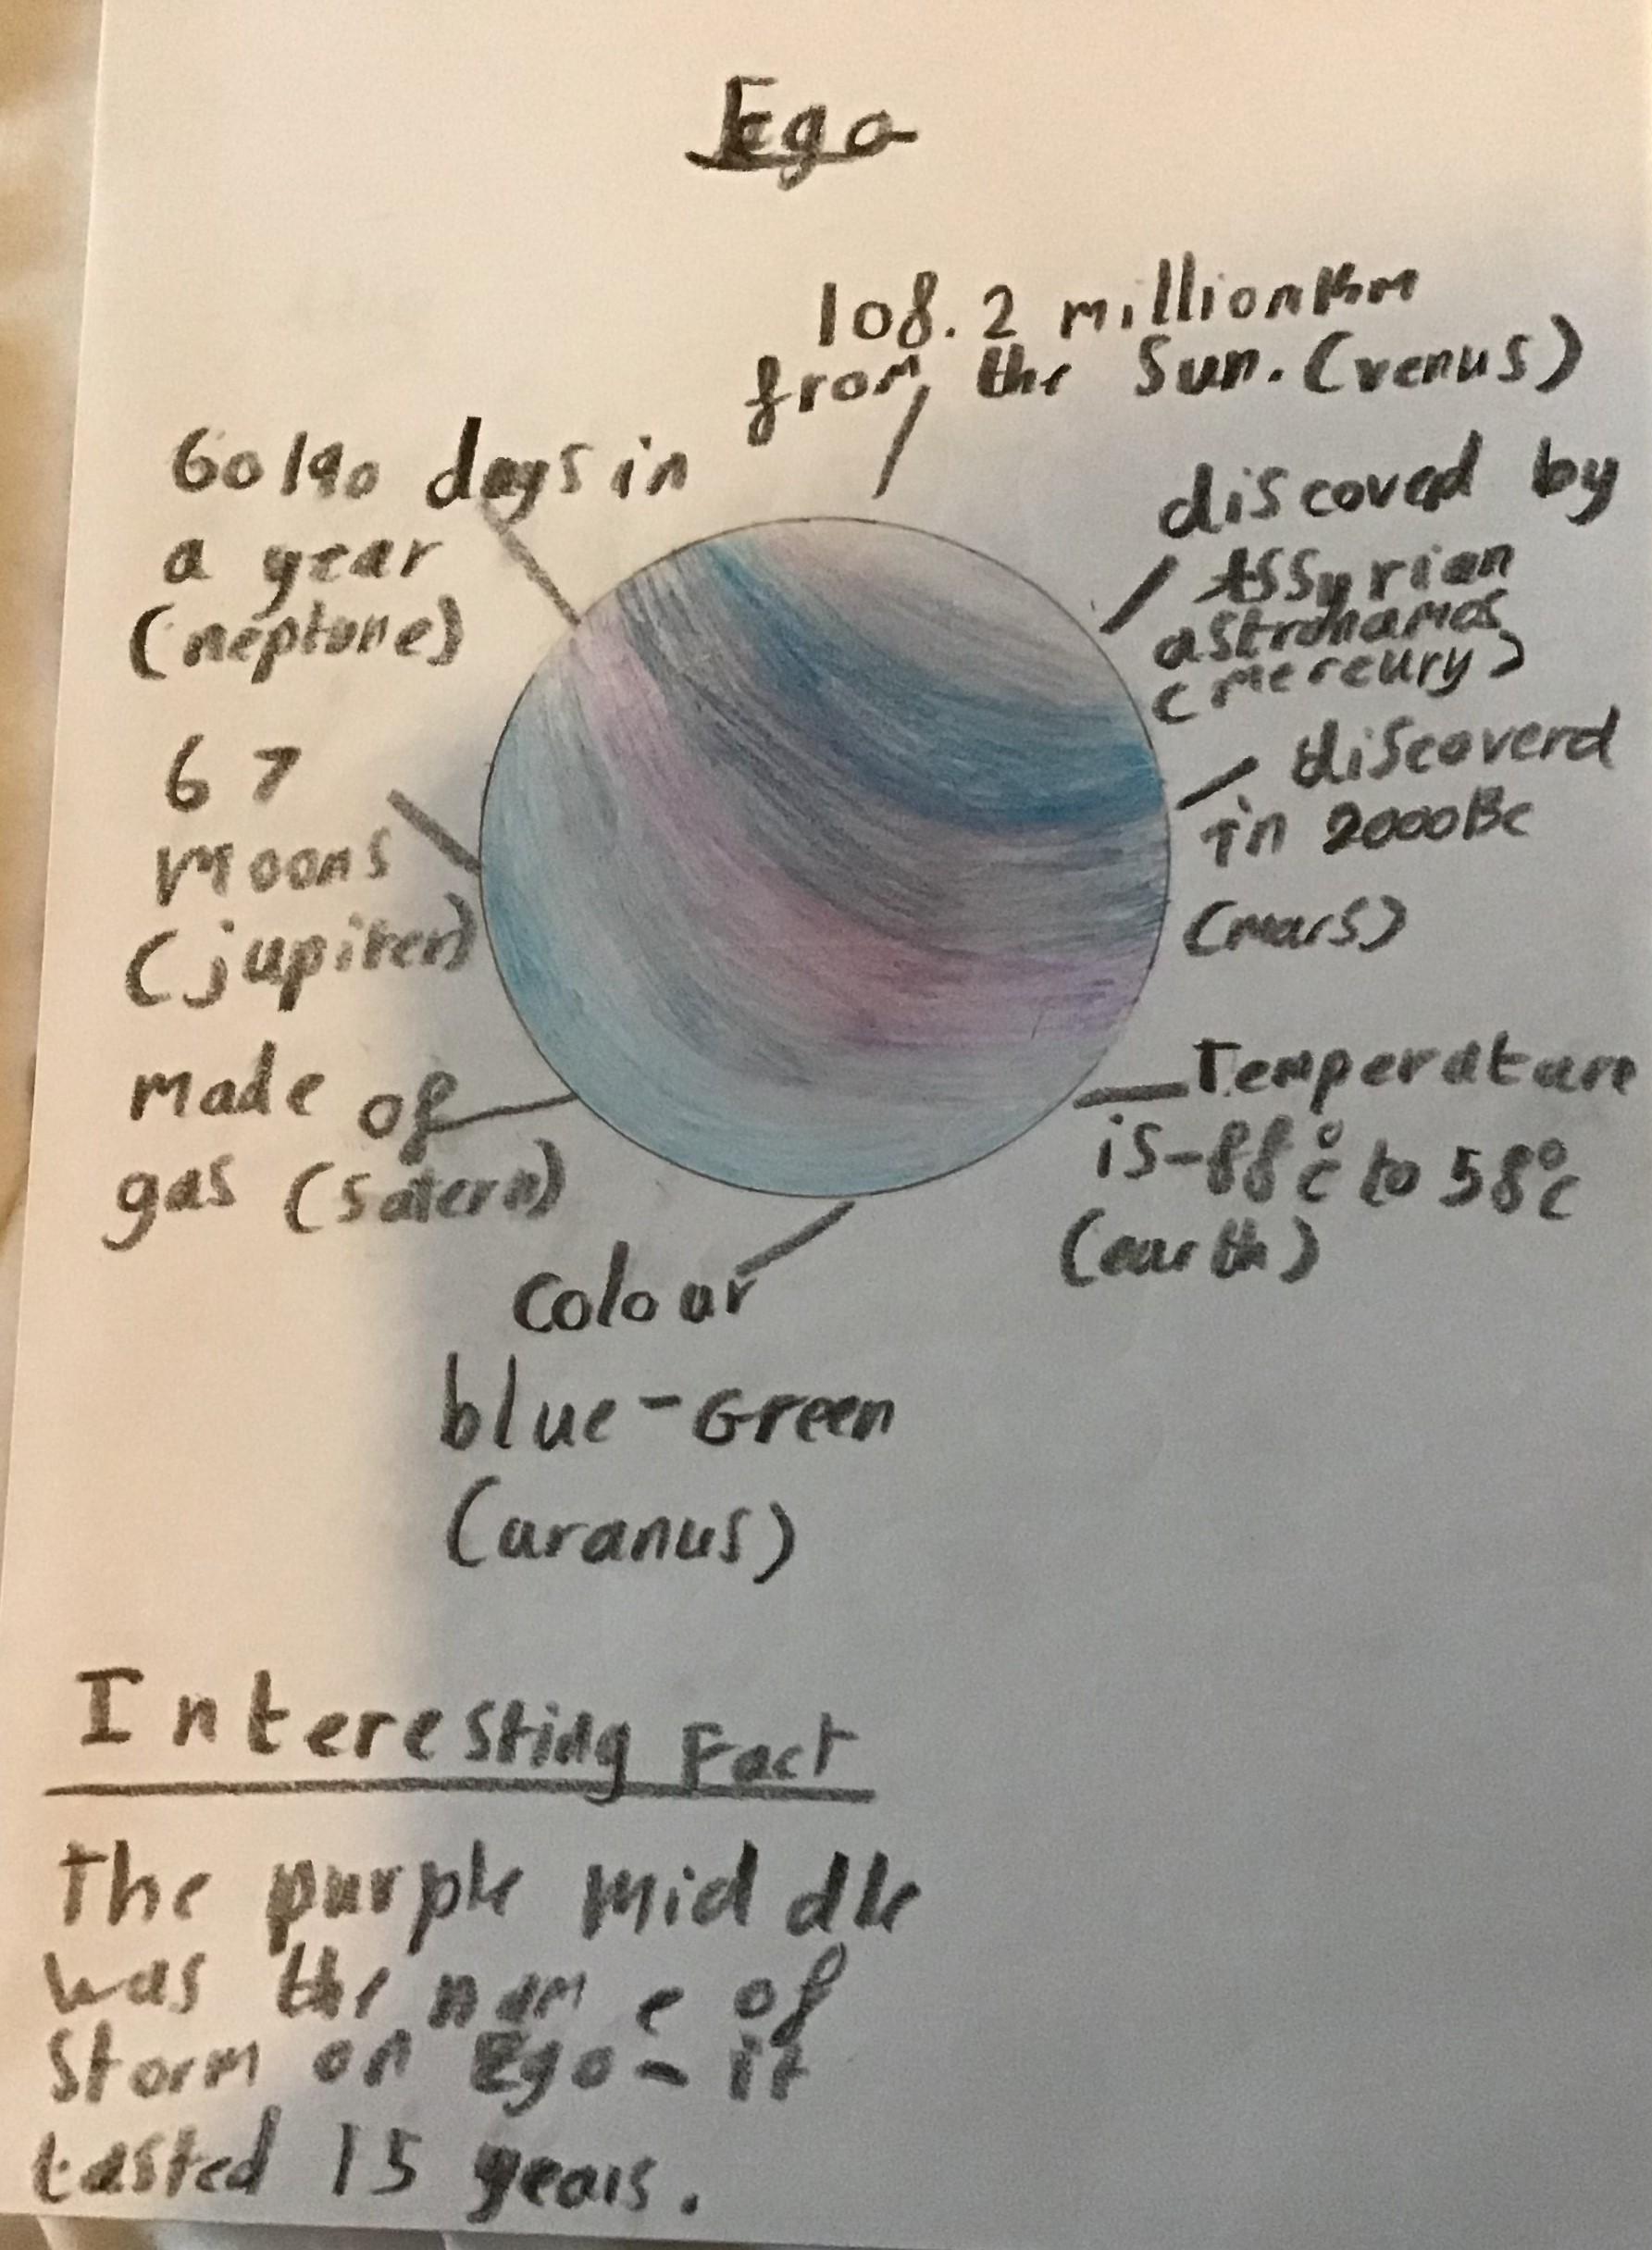 Ego
108.2 million km
from the Sun. (venus)
60190 days in
a year
(neptune)
discoved by
Assyrian
astronamos
(mereury)
67
Moons
(jupiter)
discoverd
in 2000BC
(mars)
made of
gas (Satern)
Temperature
is -88°c to 58°c
(earth)
Colour
blue-Green
(uranus)
Interesting Fact
The purple middle
was the name of
Storm on Ego - it
Lasted 15 years.